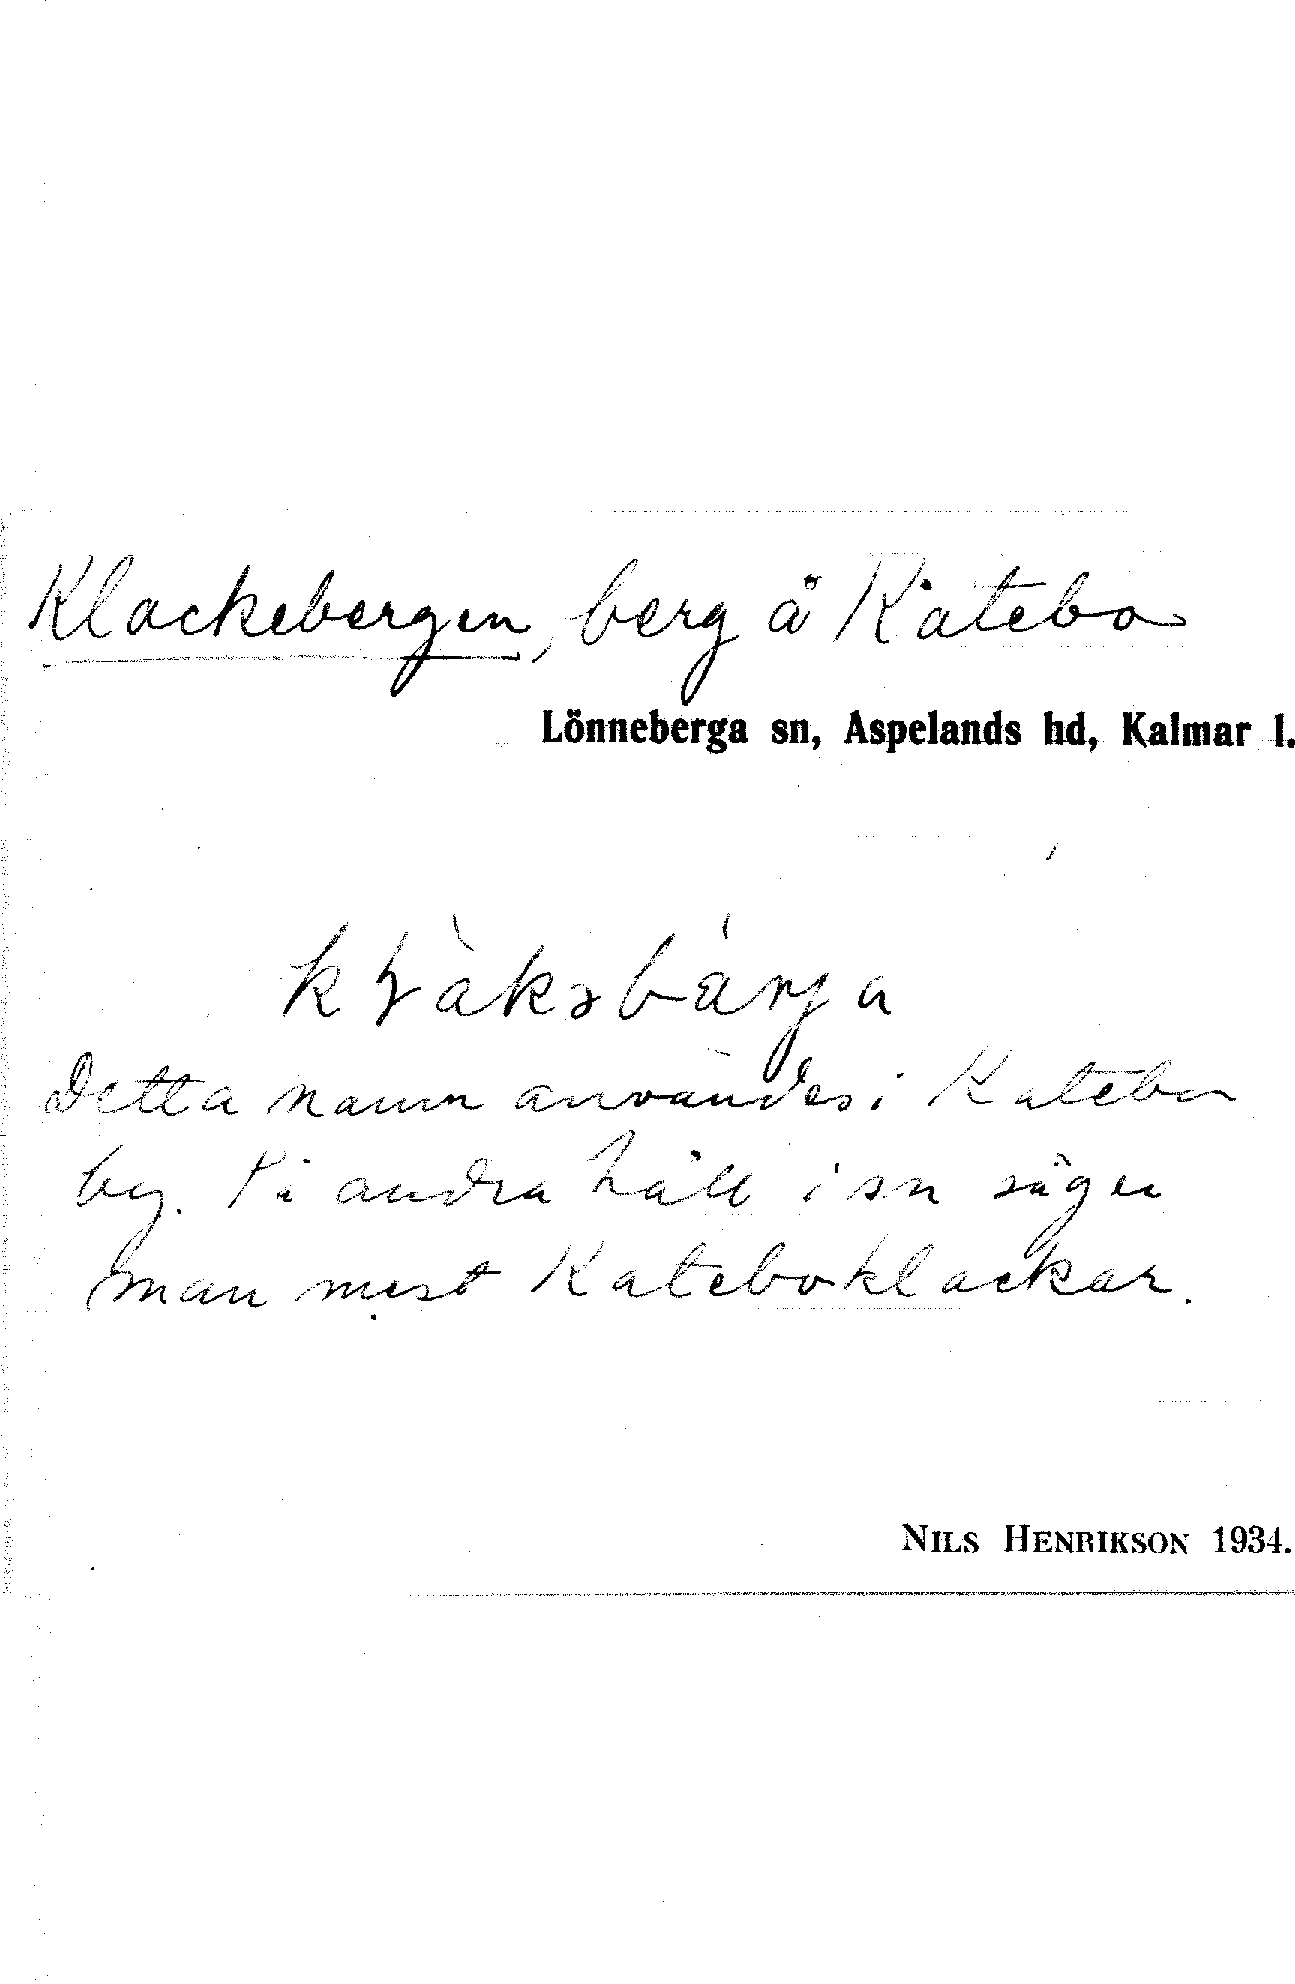 Klackebergen, berg å Katebo
Lönneberga sn, Aspelands hd, Kalmar l.
Detta namn användes i Katebo
by. På andra håll i sn säger
man mest Kateboklackar.
NILS HENRIKSON 1934.